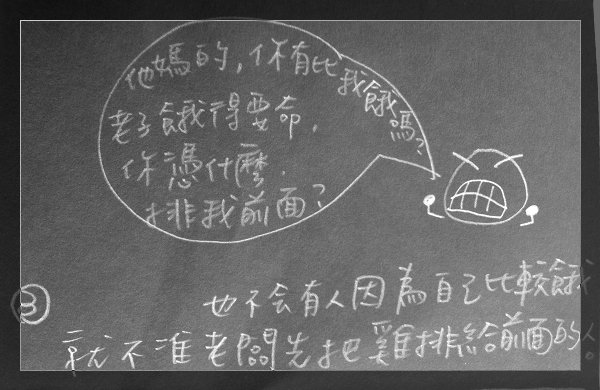 他媽的,你有比我餓嗎?
老子餓得要命,
你憑什麼
排我前面?
③
也不会有人因為自己比較餓
就不准老闆先把雞排給前面的人。